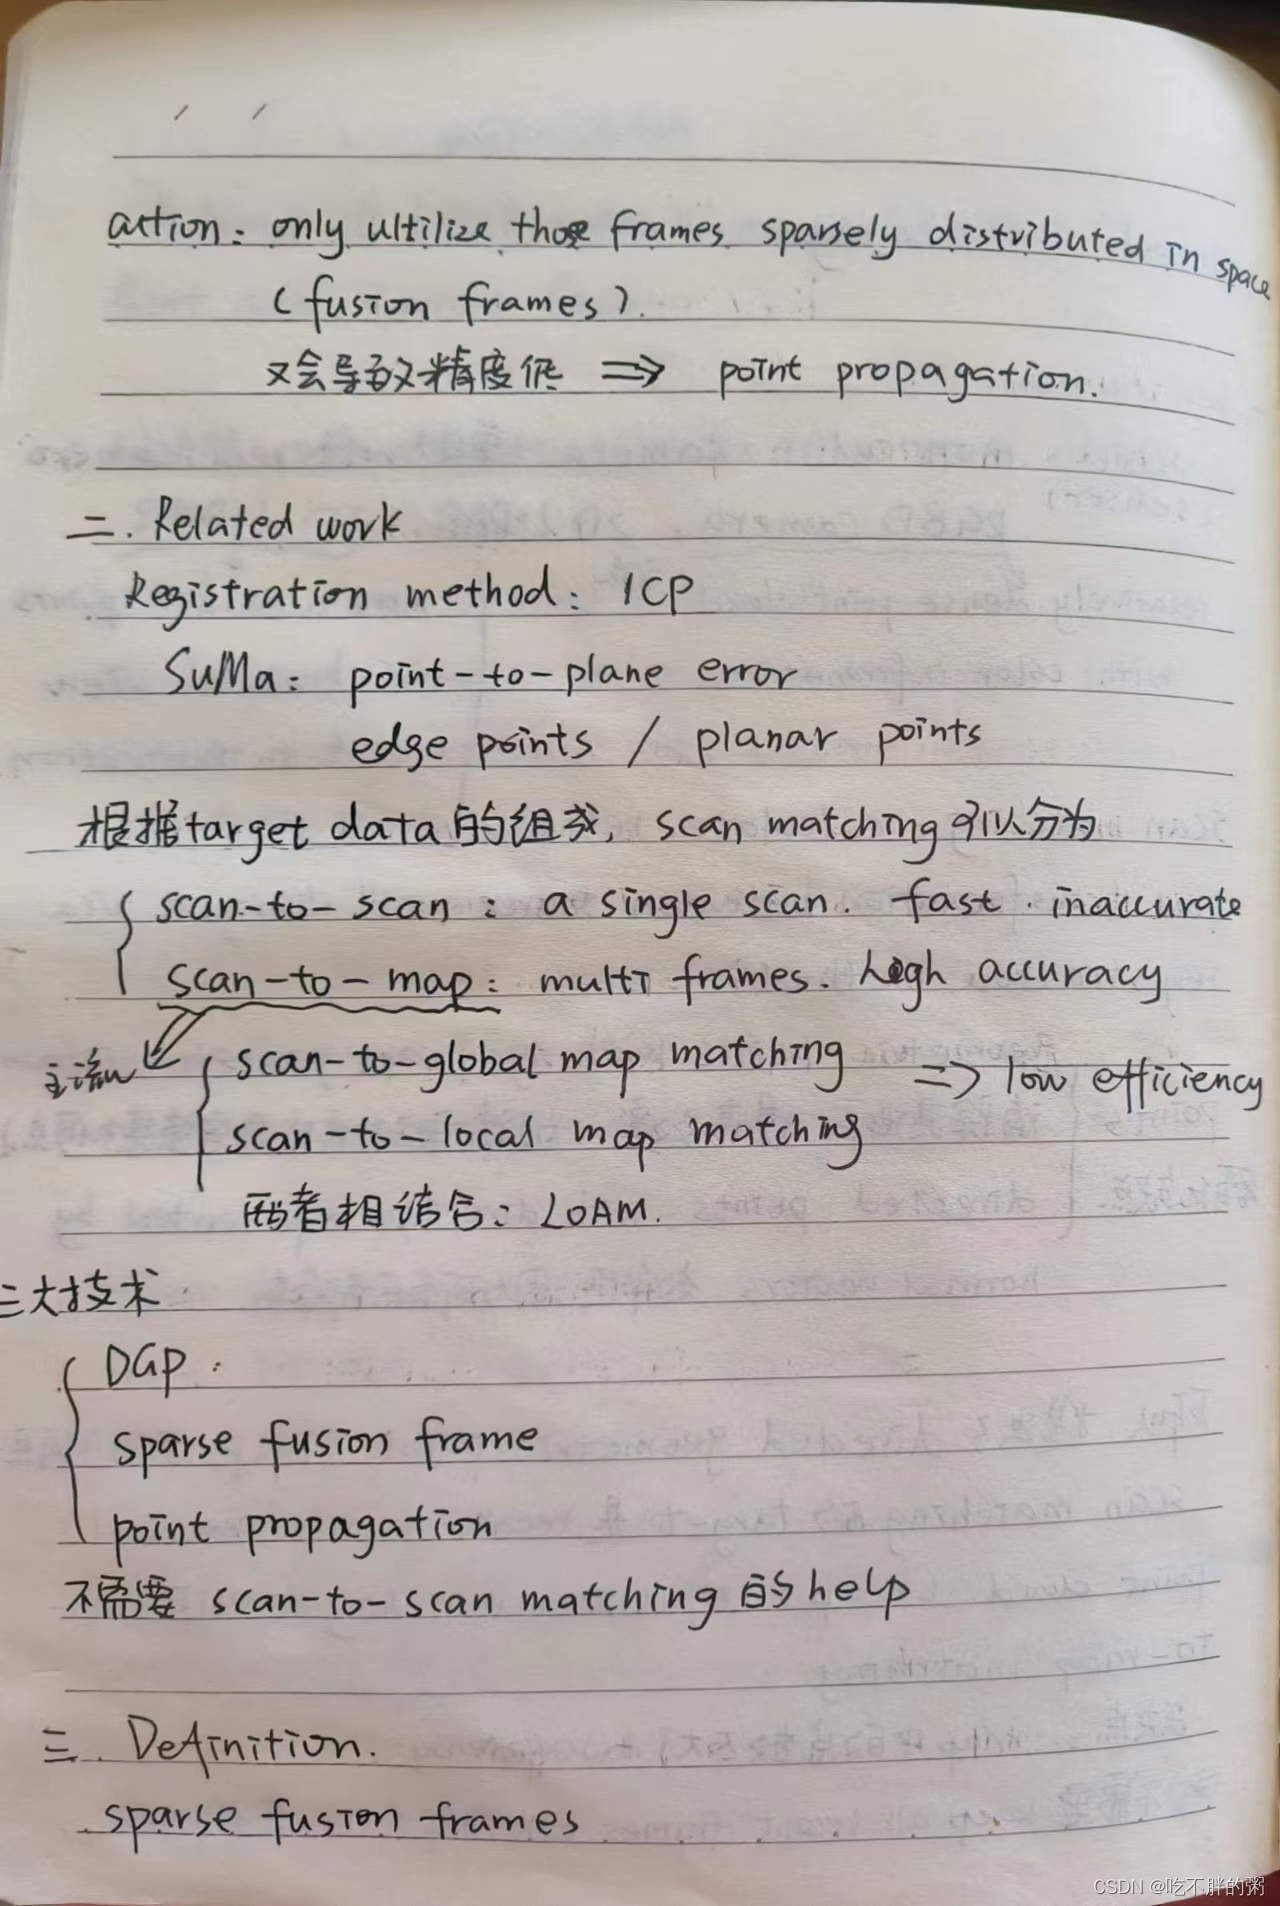 action: only ultilize those frames sparsely distributed in space
(fusion frames).
又会导致精度低 => point propagation.
二. Related work
Registration method: ICP
SuMa: point-to-plane error
edge points / planar points
根据target data的组成, scan matching可以分为
scan-to-scan: a single scan. fast. inaccurate
scan-to-map: multi frames. high accuracy
主流
scan-to-global map matching => low efficiency
scan-to-local map matching
两者相结合: LOAM.
三大技术
DGP:
sparse fusion frame
point propagation
不需要 scan-to-scan matching 的help
三. Definition.
sparse fusion frames
CSDN @吃不胖的粥